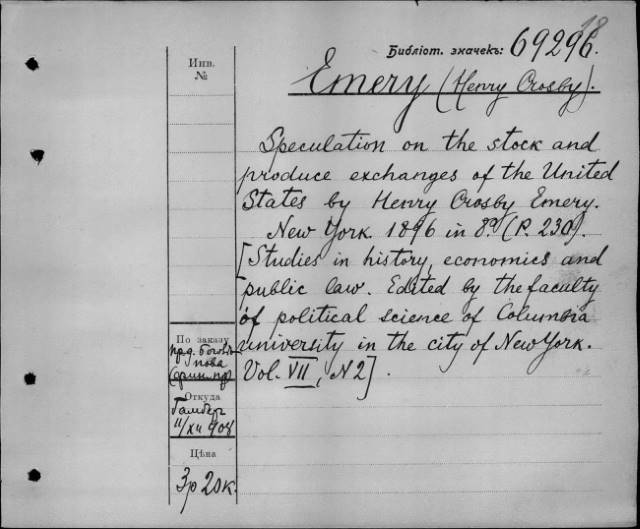 18
Библіот. значекъ: 69296.
Инв.
№
Emery (Henry Crosby).
Speculation on the stock and
produce exchanges of the United
States by Henry Crosby Emery.
New York. 1896 in 8º (P. 230).
[Studies in history, economics and
public law. Edited by the faculty
of political science of Columbia
university in the city of New York.
Vol. VII, N 2].
По заказу
Откуда
11/XII 908
Цѣна
3р 20к.